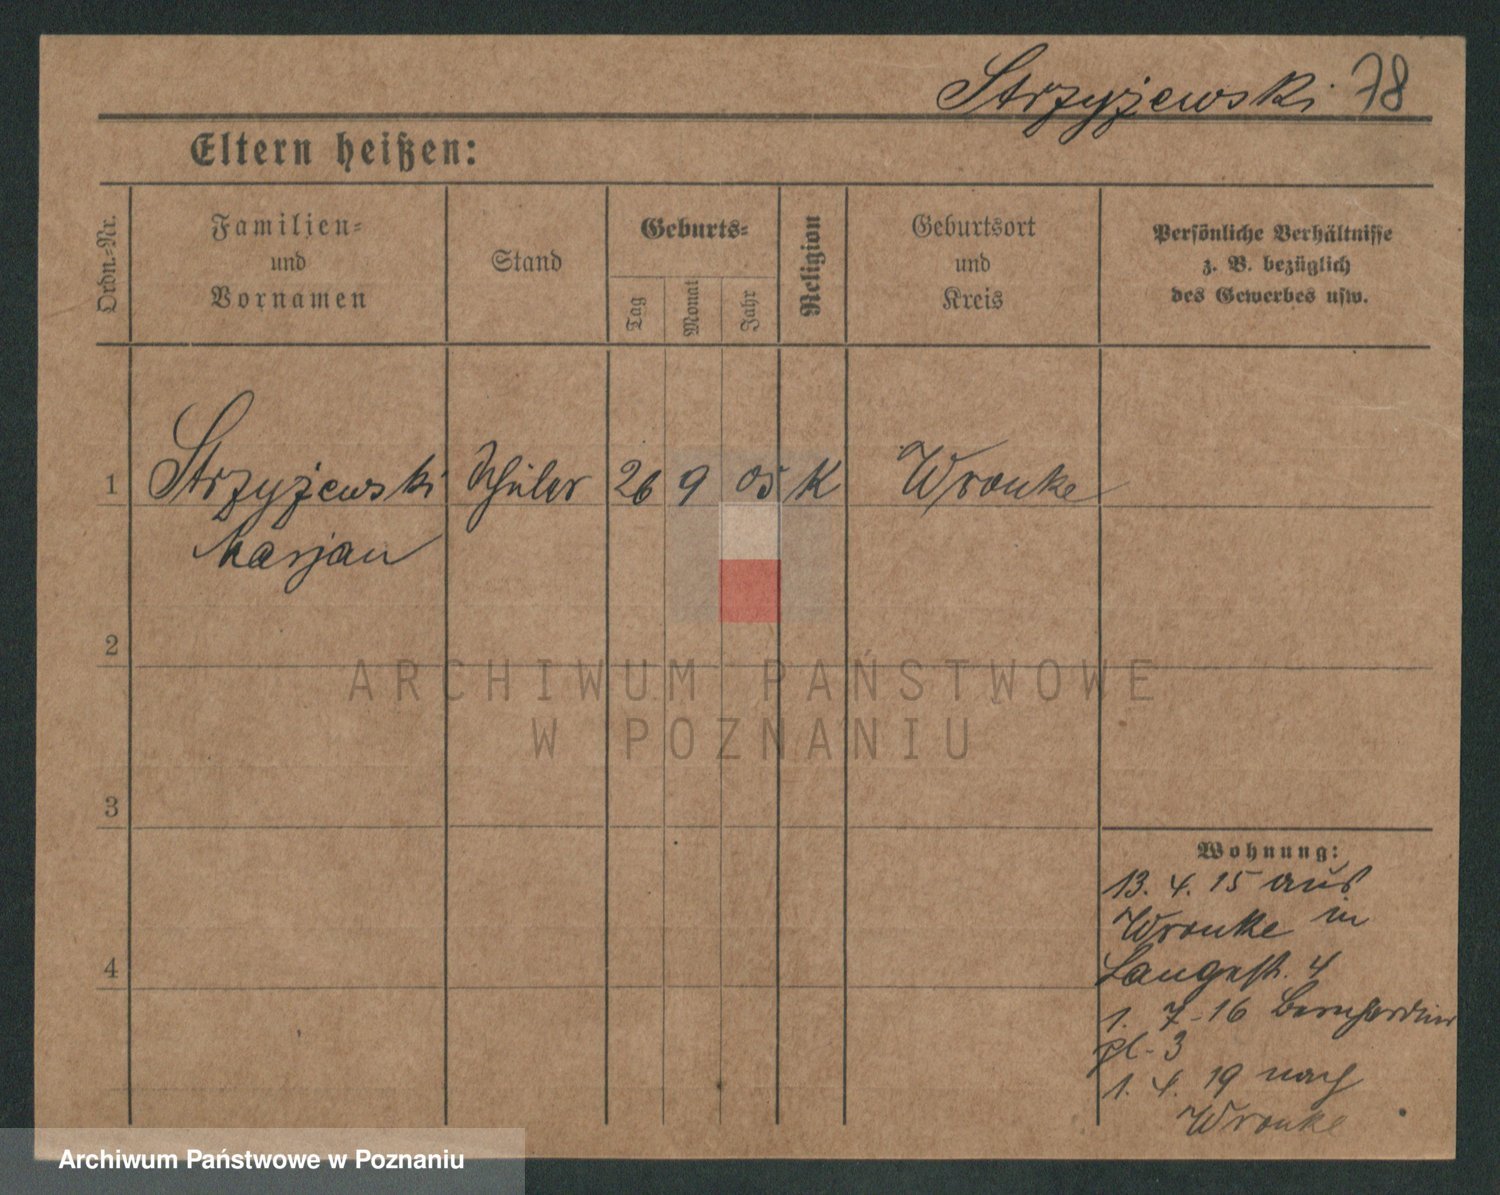 Strzyżewski 78
Eltern heißen:
Ordn.-Nr.
Familien-
und
Vornamen
Stand
Geburts-
Tag
Monat
Jahr
Religion
Geburtsort
und
Kreis
Persönliche Verhältnisse
z. B. bezüglich
des Gewerbes usw.
1 Strzyżewski Schüler 26 9 05 K Wronke
Marjan
2
3
4
Wohnung:
13. 4. 15 aus
Wronke in
Langestr. 4
1. 7-16 Bernhardiner
pl- 3
1. 4. 19 nach
Wronke
ARCHIWUM PAŃSTWOWE
W POZNANIU
Archiwum Państwowe w Poznaniu